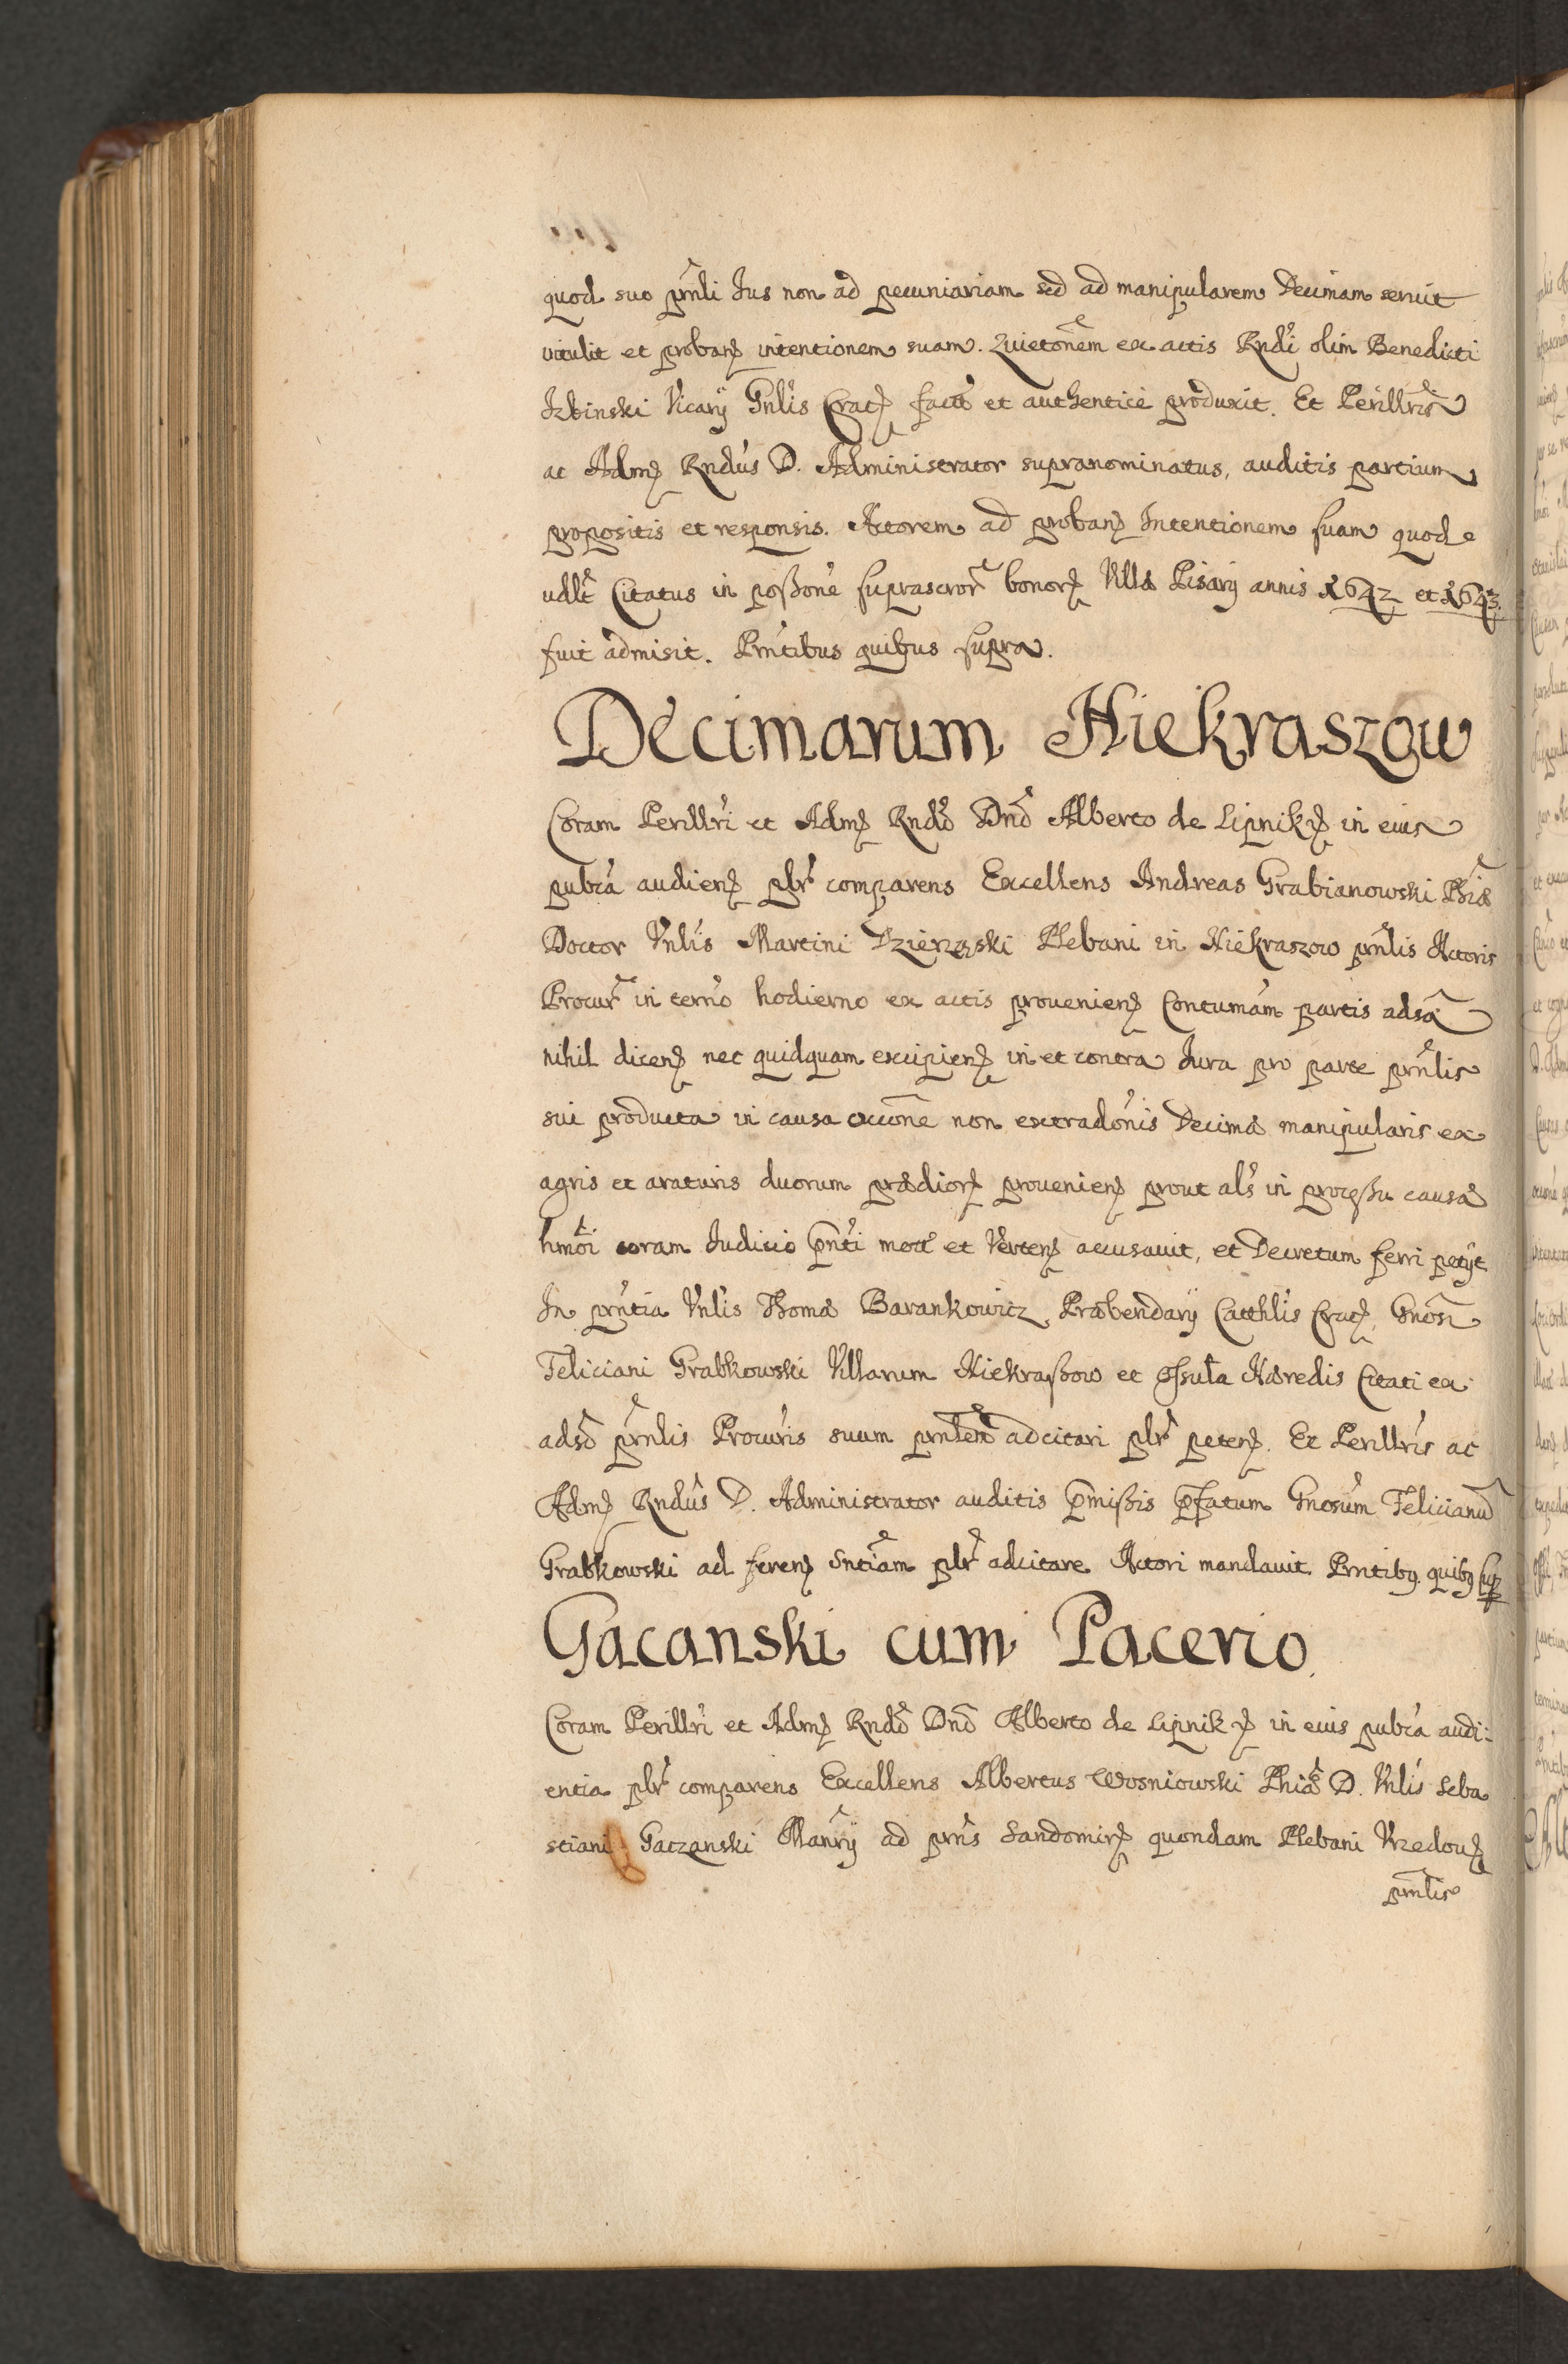 quod suo prnli Jus non ad pecuniariam sed ad manipularem Decimam seruit
intulit et proban intentionem suam. Quietonem ex actis Rndi olim Benedicti
Izbinski Vicarij Gnlis Crac fact et authentice produxit. Et Perillris
ac Adm Rndus D. Administrator supranominatus, auditis partium
propositis et responsis. Actorem ad proban Intentionem suam quod
udlt Citatus in possone suprascror bonor Villæ Pisary annis 1642 et 1643.
fuit admisit. Prntibus quibus supra.
Decimarum Niekraszow
Coram Perillri et Adm Rndo Dno Alberto de Lipnik in eius
pubca audien plr comparens Excellens Andreas Grabianowski Phiæ
Doctor Vnlis Martini Dzierzaski Plebani in Niekraszow prnlis Actoris
Procur in termo hodierno ex actis prouenien Contumam partis adsa
nihil dicen nec quidquam excipien in et contra Jura pro parte prnlis
sui producta in causa occone non extradonis Decimæ manipularis ex
agris et araturis duorum prædior prouenien prout als in processu causæ
hmoi coram Judicio pnti mot et Verten accusauit, et Decretum ferri petijt
In prntia Vnlis Thomæ Barankowicz Præbendarij Catthlis Crac, Gnosi
Feliciani Grabkowski Villarum Niekrassow et Ossula Hæredis Citati ex
adso prnlis Procuris suum prnlem adcitari plr peten. Et Perillris ac
Adm Rndus D. Administrator auditis pmissis pfatum Gnosum Felicianu
Grabkowski ad feren Sntiam plr adcitare Actori mandauit. Prntibq quibq sup
Gacanski cum Pacerio.
Coram Perillri et Adm Rndo Dno Alberto de Lipnik in eius pubca audi:
entia plr comparens Excellens Albertus Wosniowski Phiæ D. Vnlis Seba
stiani Gaczanski Manrij ad prns Sandomir quondam Plebani Vrzedou
prnlis